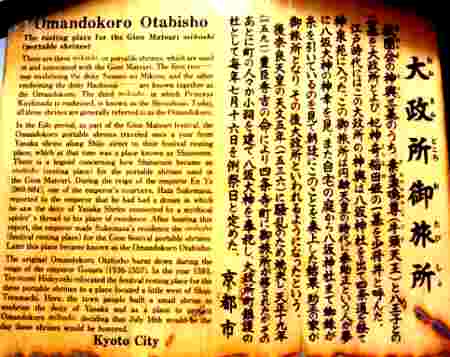 Omandokoro Otabisho
The resting place for the Gion Matsuri mikoshi
(portable shrines)
There are three mikoshi, or portable shrines, which are used
in and associated with the Gion Matsuri. The first two
enshrining the deity Susano no Mikoto, and the other
enshrining the deity are known together as
the Omandokoro. The third mikoshi in which Princess
is enshrined, is known as the Today,
all three shrines are generally referred to as the Omandokoro.
In the Edo period, as part of the Gion Matsuri festival, the
Omandokoro portable shrines traveled once a year from
Yasaka shrine along Shijo street to their festival resting
place, which at that time was a place known as
There is a legend concerning how became
(resting place) for the portable shrines used in
the Gion Matsuri. During the reign of the emperor En'Yu
one of the emperor's courtiers, Hata Sukemasa,
reported to the emperor that he had had a dream in which
he saw the deity of Yasaka Shrine connected by a mythical
spider's thread to his place of residence. After hearing this
report, the emperor made Sukemasa's residence the otabisho
(festival resting place) for the Gion festival portable shrines.
Later this place became known as the Omandokoro Otabisho.
The original Omandokoro Otabisho burnt down during the
reign of the emperor Gonara (1536-1557). In the year 1591,
Toyotomi Hideyoshi relocated the festival resting place for the
three portable shrines to a place located a little west of Shijo
Teramachi. Here, the town people built a small shrine to
the deity of Yasaka and as a place to
Omandokoro, deciding that July 16th would be the
day these shrines would be honored.
Kyoto City
大政所御旅所
おお まん どころ お たび しょ
祇園祭の神輿三基のうち、素戔嗚尊(牛頭天王)と八王子との
二基を大政所といい、妃神奇稲田姫の一基を少将井と呼んだ。
江戸時代にはこの大政所の神輿は八坂神社を出て四条通を経て
神泉苑に入った。この御旅所は円融天皇の時代に秦助正という人が夢
に八坂大神の神幸を見、また自宅の庭から八坂神社まで蜘蛛が
糸を引いているのを見て朝廷にこのことを奏上した結果、助正の家が
御旅所となり、その後大政所といわれるようになったという。
後奈良天皇の天文五年(一五三六)に騒乱のため焼失し天正十九年
(一五九一)豊臣秀吉の命により四条寺町に御旅所が移されたが、その
あとに町の人々が小祠を建て、八坂大神を奉祀し、大政所御旅所の
社として毎年七月十六日を例祭日と定めた。
京都市